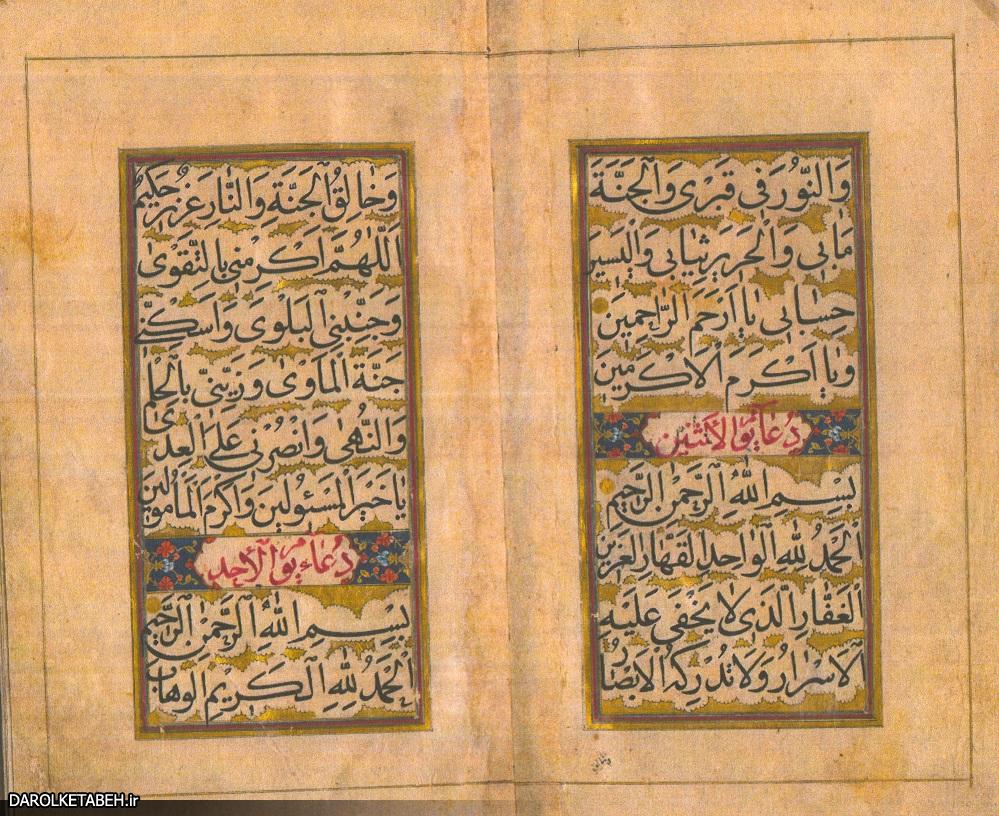 وَالنُّورَ فِي قَبْرِي وَالْجَنَّةَ
مَاٰبِي وَالْحَرِيرَ ثِيَابِي وَالْيَسِيرَ
حِسَابِي يَا اَرْحَمَ الرَّاحِمِينَ
وَيَا اَكْرَمَ الْاَكْرَمِينَ
دُعَاءِ يَوْمِ الْاِثْنَيْنِ
بِسْمِ اللّٰهِ الرَّحْمٰنِ الرَّحِيمِ
اَلْحَمْدُ لِلّٰهِ الْوَاحِدِ الْقَهَّارِ الْعَزِيزِ
الْغَفَّارِ الَّذِي لَا يَخْفَى عَلَيْهِ
الْاَسْرَارُ وَلَا تُدْرِكُهُ الْاَبْصَارُ
وَخَالِقُ الْجَنَّةِ وَالنَّارِ عَزِيزٌ حَكِيمٌ
اَللّٰهُمَّ اَكْرِمْنِي بِالتَّقْوٰى
وَجَنِّبْنِي الْبَلْوٰى وَاَسْكِنِّي
جَنَّةَ الْمَاْوٰى وَزَيِّنِّي بِالْحِلْمِ
وَالنُّهٰى وَانْصُرْنِي عَلَى الْعِدٰى
يَا خَيْرَ الْمَسْئُولِينَ وَاَكْرَمَ الْمَاْمُولِينَ
دُعَاءِ يَوْمِ الْاَحَدِ
بِسْمِ اللّٰهِ الرَّحْمٰنِ الرَّحِيمِ
اَلْحَمْدُ لِلّٰهِ الْكَرِيمِ الْوَهَّابِ
DAROLKETABEH.ir